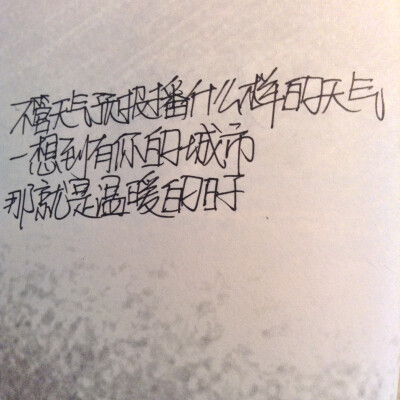 不管天气预报播什么样的天气
一想到有你的城市
那就是温暖的日子